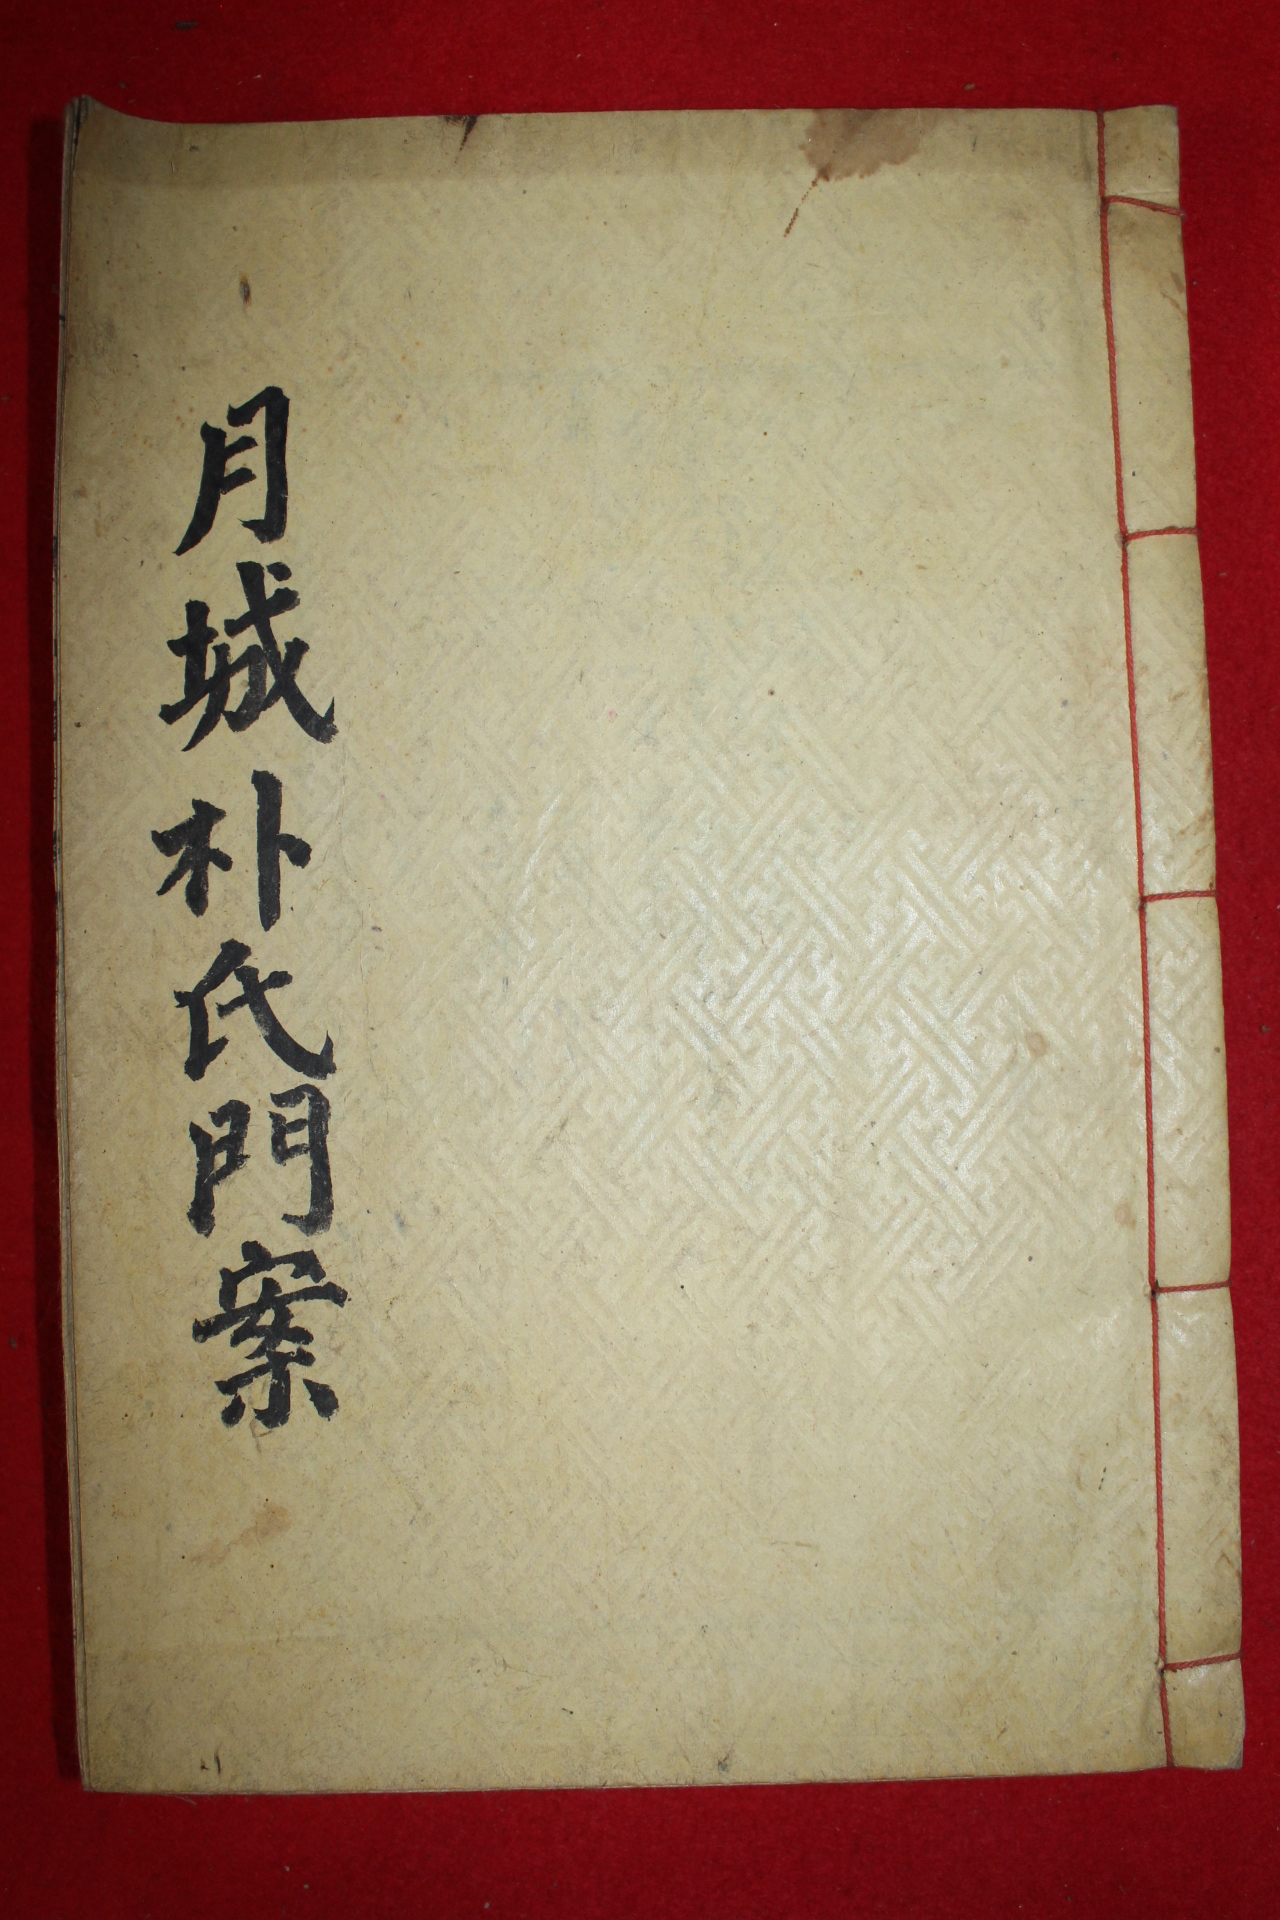 月城朴氏門案